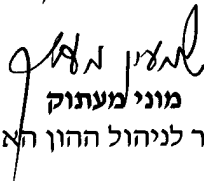 מוני מעתוק
ר לניהול ההון הא